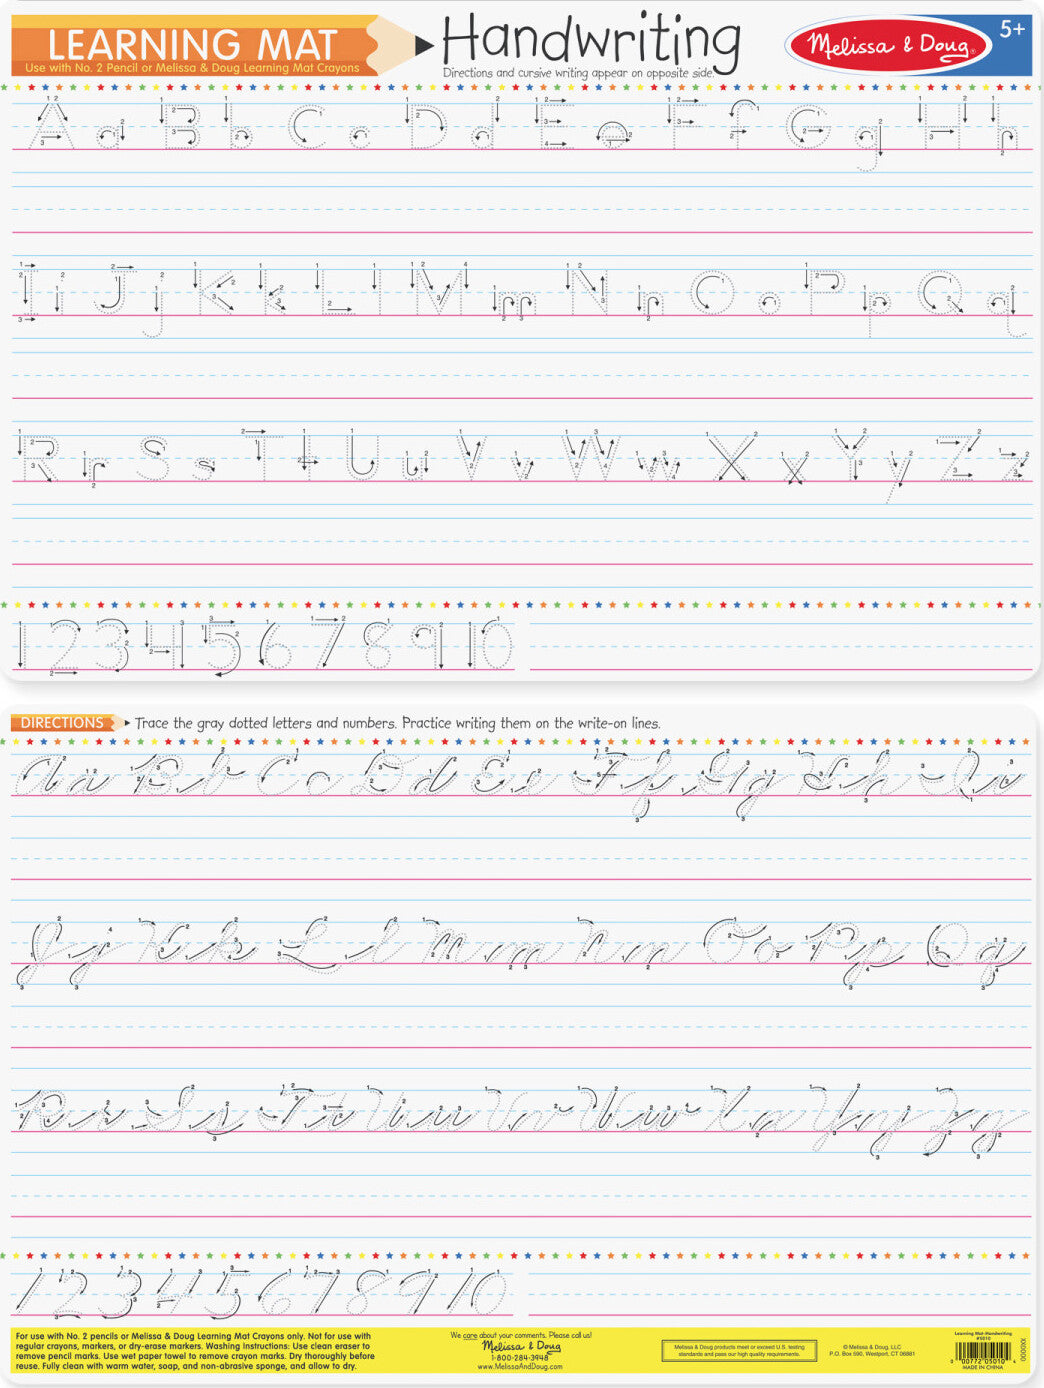 LEARNING MAT
Use with No. 2 Pencil or Melissa & Doug Learning Mat Crayons
Handwriting
Directions and cursive writing appear on opposite side.
Melissa & Doug®
5+
A a B b C c D d E e F f G g H h
I i J j K k L l M m N n O o P p Q q
R r S s T t U u V v W w X x Y y Z z
1 2 3 4 5 6 7 8 9 10
DIRECTIONS
Trace the gray dotted letters and numbers. Practice writing them on the write-on lines.
A a B b C c D d E e F f G g H h I i
J j K k L l M m N n O o P p Q q
R r S s T t U u V v W w X x Y y Z z
1 2 3 4 5 6 7 8 9 10
For use with No. 2 pencils or Melissa & Doug Learning Mat Crayons only. Not for use with
regular crayons, markers, or dry-erase markers. Washing Instructions: Use clean eraser to
remove pencil marks. Use wet paper towel to remove crayon marks. Dry thoroughly before
reuse. Fully clean with warm water, soap, and non-abrasive sponge, and allow to dry.
We care about your comments. Please call us!
Melissa & Doug
1-800-284-3948
www.MelissaAndDoug.com
Melissa & Doug products meet or exceed U.S. testing
standards and pass our high quality requirements.
© Melissa & Doug, LLC
P.O. Box 590, Westport, CT 06881
Learning Mat-Handwriting
#5010
0 00772 05010 4
MADE IN CHINA